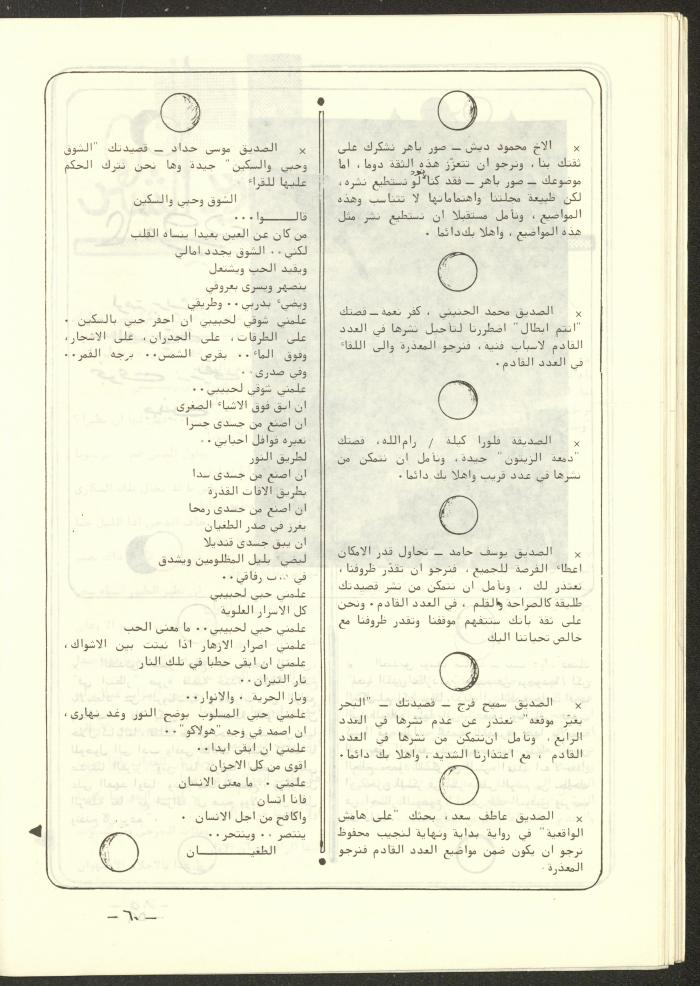 × الاخ محمود دبش ــ صور باهر نشكرك على
ثقتك بنا، ونرجو ان تتعزّز هذه الثقة دوما، اما
موضوعك ــ صور باهر ــ فقد كنا نود لو نستطيع نشره،
لكن طبيعة مجلتنا واهتماماتها لا تتناسب وهذه
المواضيع، ونأمل مستقبلا ان نستطيع نشر مثل
هذه المواضيع، واهلا بك دائما.
× الصديق محمد الحنيني، كفر نعمه ــ قصتك
"انتم ابطال" اضطررنا لتأجيل نشرها في العدد
القادم لاسباب فنية، فنرجو المعذرة والى اللقاء
في العدد القادم.
× الصديقة فلورا كيلة / رام الله، قصتك
"دمعة الزيتون" جيدة، ونأمل ان نتمكن من
نشرها في عدد قريب واهلا بك دائما.
× الصديق يوسف حامد ــ نحاول قدر الامكان
اعطاء الفرصة للجميع، فنرجو ان تقدّر ظروفنا،
نعتذر لك، ونأمل ان نتمكن من نشر قصيدتك
طليقة كالصراحة والقلم، في العدد القادم. ونحن
على ثقة بانك ستتفهم موقفنا وتقدر ظروفنا مع
خالص تحياتنا اليك
× الصديق سميح فرج ــ قصيدتك ــ "البحر
يغيّر موقعه" نعتذر عن عدم نشرها في العدد
الرابع، ونأمل ان نتمكن من نشرها في العدد
القادم، مع اعتذارنا الشديد، واهلا بك دائما.
× الصديق عاطف سعد، بحثك "على هامش
الواقعية" في رواية بداية ونهاية لنجيب محفوظ
نرجو ان يكون ضمن مواضيع العدد القادم فنرجو
المعذرة.
× الصديق موسى حداد ــ قصيدتك "الشوق
وحبي والسكين" جيدة وها نحن نترك الحكم
عليها للقراء
الشوق وحبي والسكين
قالــــوا...
من كان عن العين بعيدا ينساه القلب
لكني.. الشوق يجدد امالي
ويقيد الحب ويشتعل
ينصهر ويسرى بعروقي
ويضيء بدربي.. وطريقي
علمني شوقي لحبيبي ان احفر حبي بالسكين.
على الطرقات، على الجدران، على الاشجار،
وفوق الماء.. بقرص الشمس.. بوجه القمر..
وفي صدرى..
علمني شوقي لحبيبي..
ان ابق فوق الاشياء الصغرى
ان اصنع من جسدى جسرا
تعبره قوافل احبابي..
لطريق النور
ان اصنع من جسدى سدا
بطريق الافات القذرة
ان اصنع من جسدى رمحا
يغرز في صدر الطغيان
ان يبق جسدى قنديلا
ليضيء بليل المظلومين ويشدق
في رفاقي..
علمني حبي لحبيبي
كل الاسرار العلوية
علمني حبي لحبيبي.. ما معنى الحب
علمني اصرار الازهار اذا نبتت بين الاشواك،
علمني ان ابقى حطبا في تلك النار
نار الثيران..
ونار الحرية. والانوار..
علمني حبي المسلوب بوضح النور وغد بهارى،
ان اصمد في وجه "هولاكو"..
علمني ان ابقى ابدا..
اقوى من كل الاحزان
علمني. ما معنى الانسان
فانا انسان
واكافح من اجل الانسان.
ينتصر.. وينتحر..
الطغيــــــان
ــ ٦٠ ــ